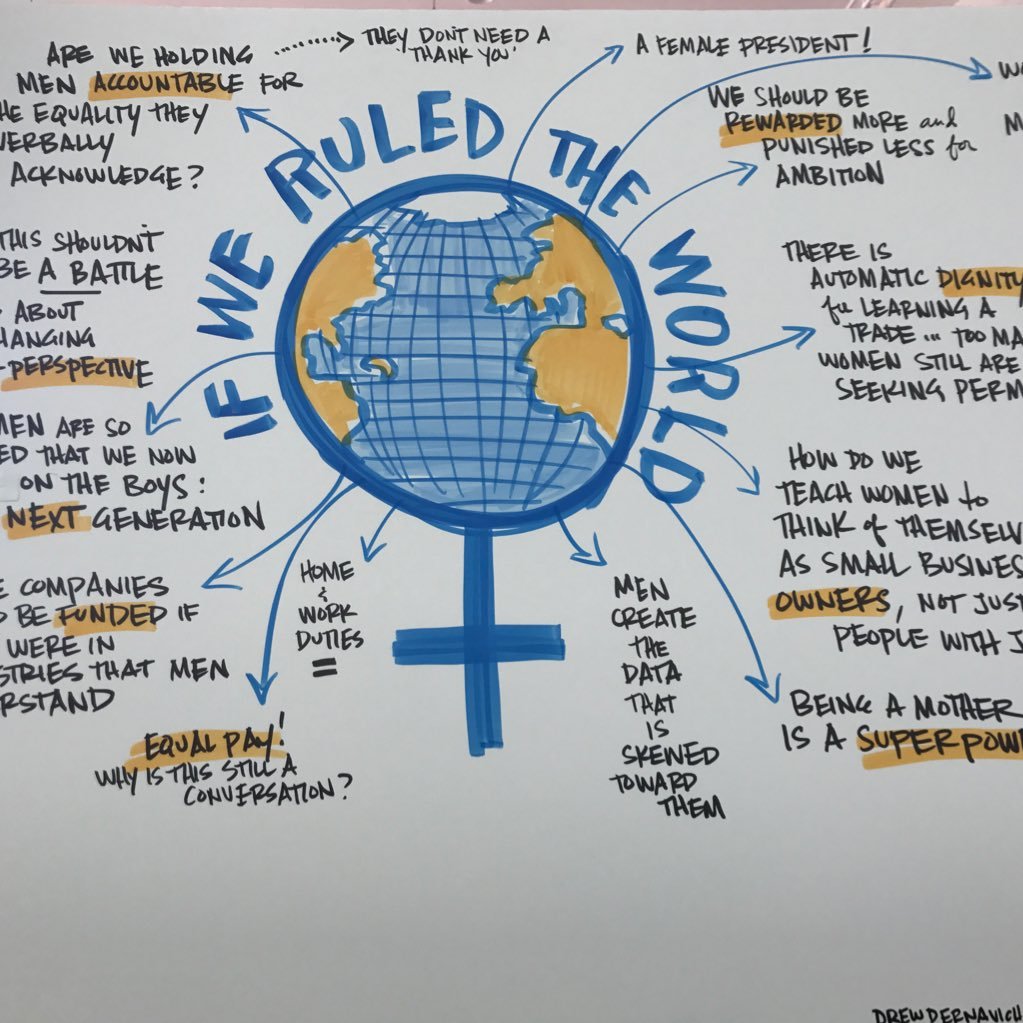 ARE WE HOLDING
MEN ACCOUNTABLE FOR
HE EQUALITY THEY
VERBALLY
ACKNOWLEDGE?
THEY DON'T NEED A
'THANK YOU'
A FEMALE PRESIDENT!
WE SHOULD BE
REWARDED MORE and
PUNISHED LESS for
AMBITION
IF WE RULED THE WORLD
THIS SHOULDN'T
BE A BATTLE
ABOUT
HANGING
PERSPECTIVE
THERE IS
AUTOMATIC DIGNITY
for LEARNING A
TRADE ... TOO MA
WOMEN STILL ARE
SEEKING PERM
MEN ARE SO
ED THAT WE NOW
ON THE BOYS:
NEXT GENERATION
HOW DO WE
TEACH WOMEN to
THINK of THEMSELV
AS SMALL BUSINES
OWNERS, NOT JUST
PEOPLE WITH J
E COMPANIES
BE FUNDED IF
WERE IN
STRIES THAT MEN
RSTAND
HOME
&
WORK
DUTIES
=
MEN
CREATE
THE
DATA
THAT
IS
SKEWED
TOWARD
THEM
BEING A MOTHER
IS A SUPERPOWE
EQUAL PAY!
WHY IS THIS STILL A
CONVERSATION?
DREW DERNAVICH